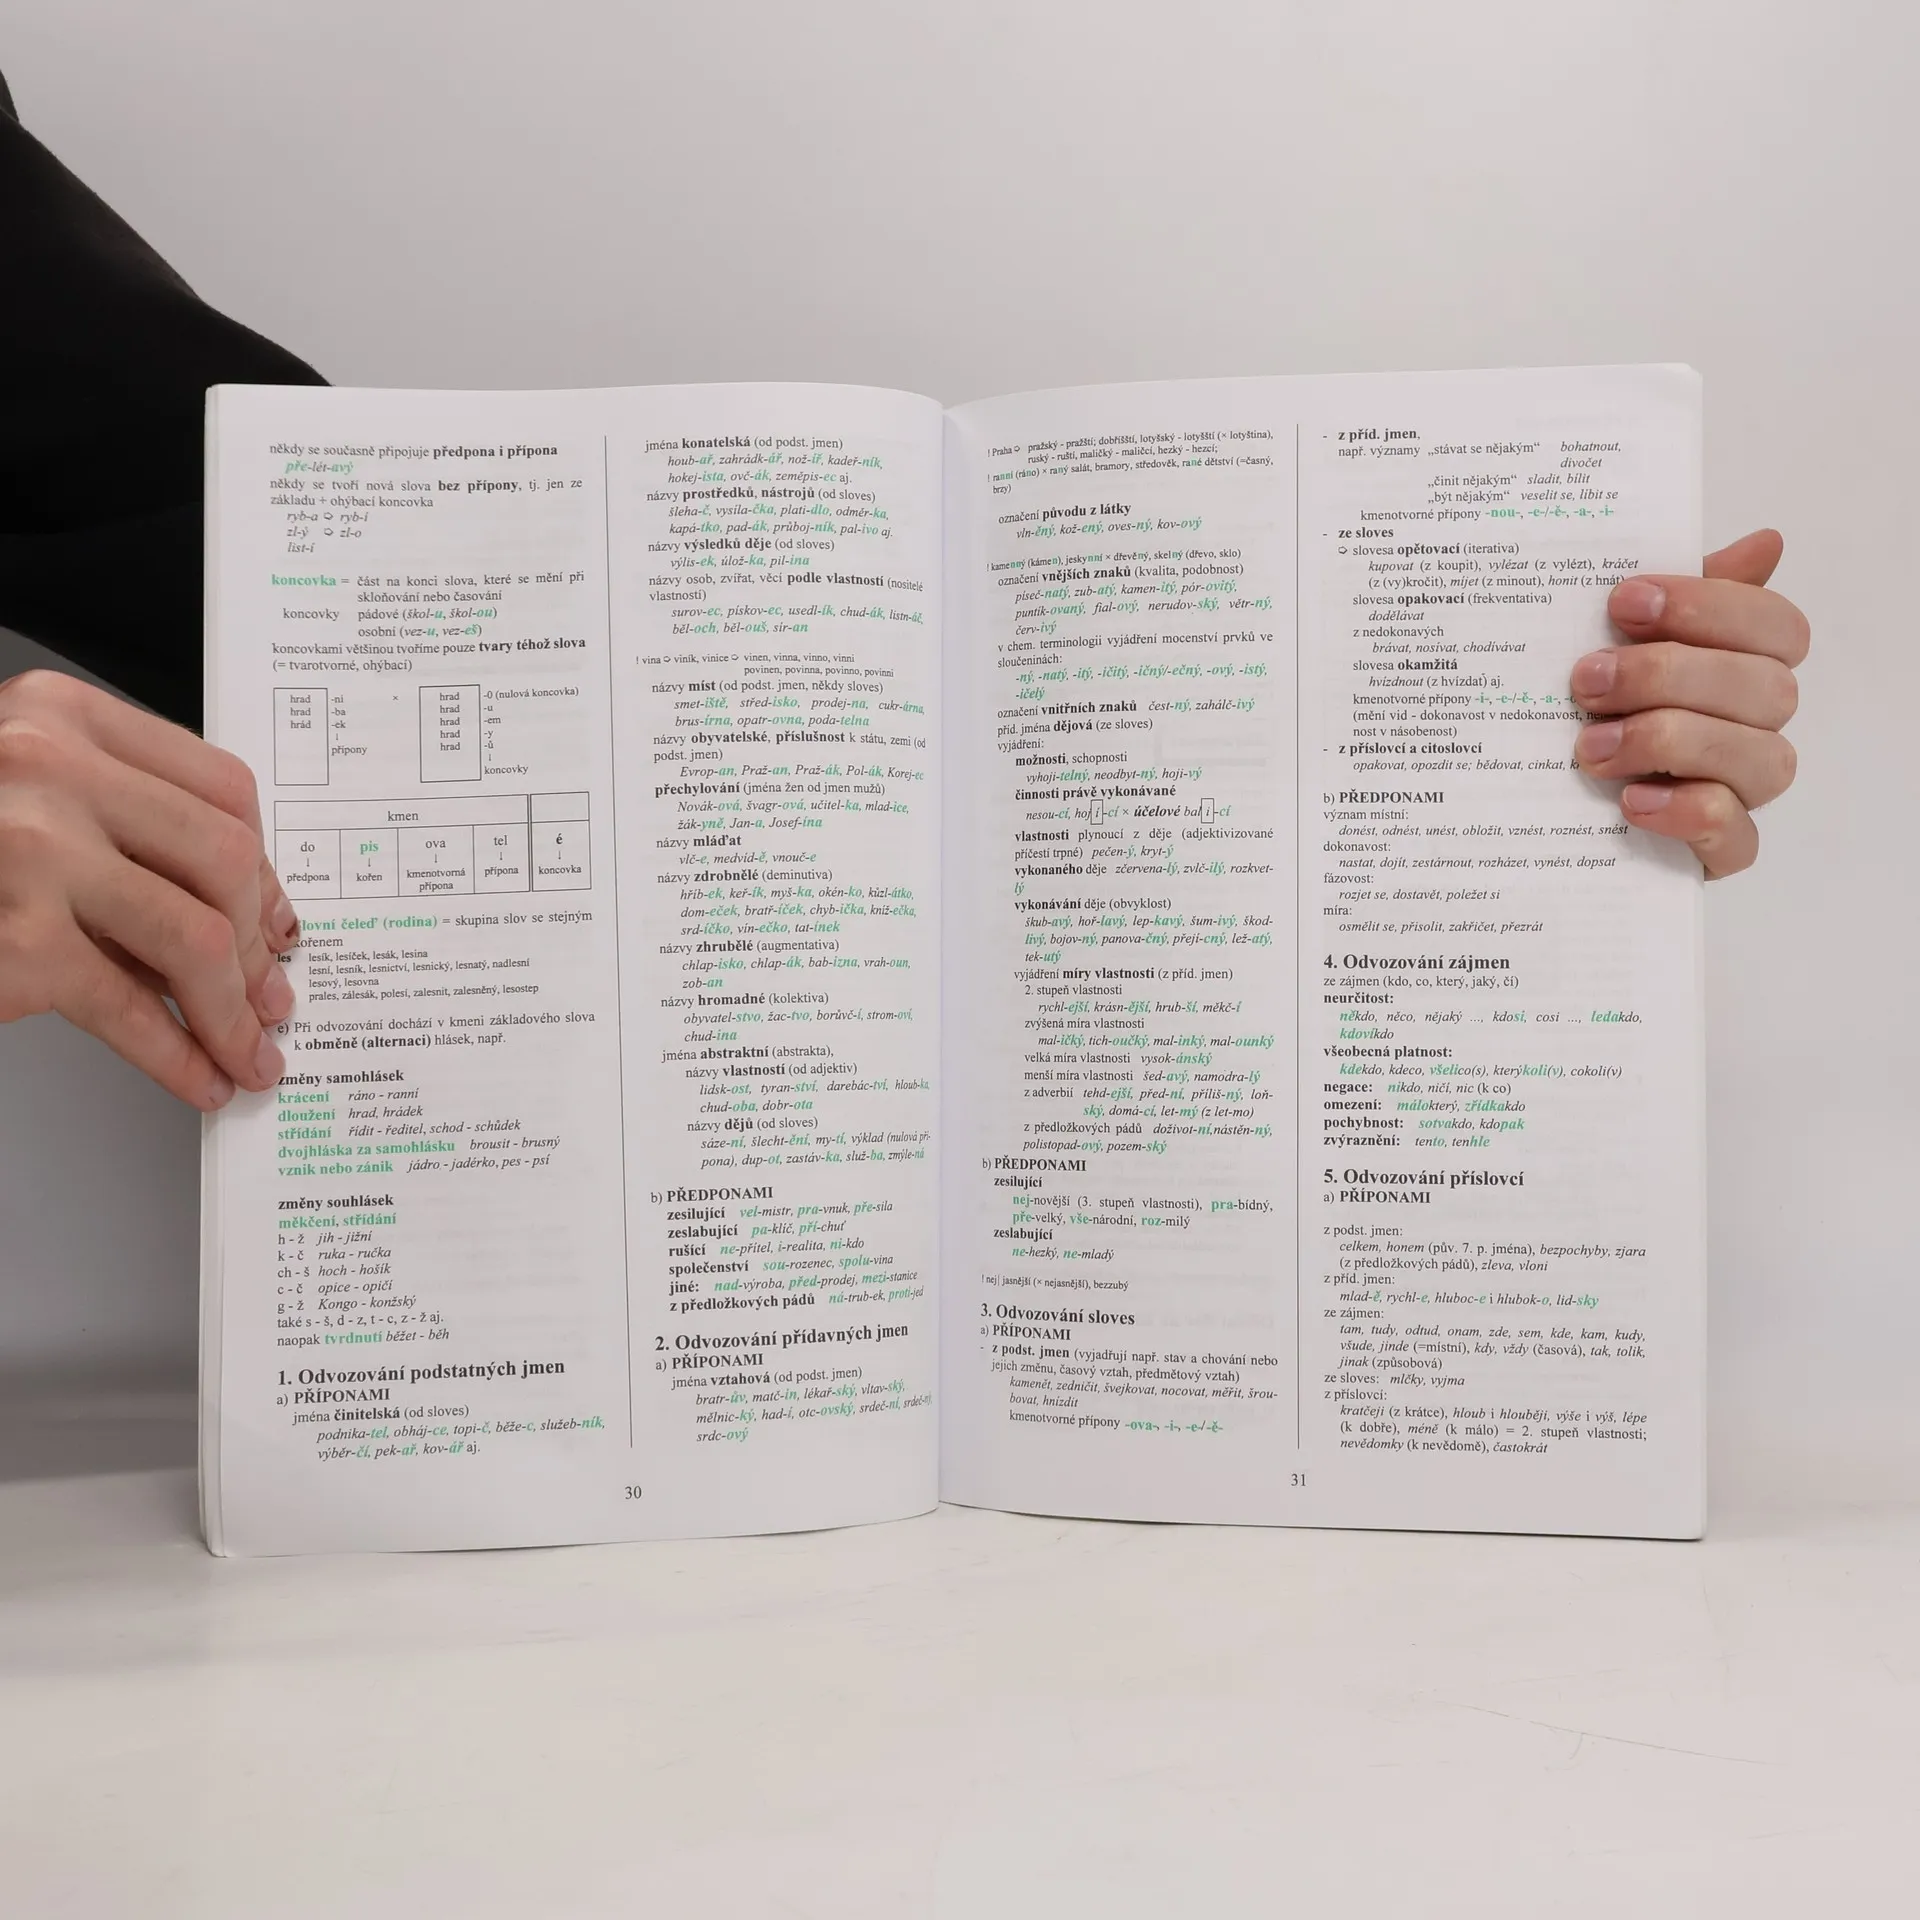 někdy se současně připojuje předpona i přípona
pře-lét-avý
někdy se tvoří nová slova bez přípony, tj. jen ze
základu + ohýbací koncovka
ryb-a ➪ ryb-í
zl-ý ➪ zl-o
list-í
koncovka = část na konci slova, které se mění při
skloňování nebo časování
koncovky pádové (škol-u, škol-ou)
osobní (vez-u, vez-eš)
koncovkami většinou tvoříme pouze tvary téhož slova
(= tvarotvorné, ohýbací)
hrad -ní × hrad -0 (nulová koncovka)
hrad -ba hrad -u
hrád -ek hrad -em
hrad -y
hrad -ů
přípony
koncovky
kmen
do pis ova tel é
předpona kořen kmenotvorná přípona přípona koncovka
lovní čeleď (rodina) = skupina slov se stejným
kořenem
les lesík, lesíček, lesák, lesina
lesní, lesník, lesnictví, lesnický, lesnatý, nadlesní
lesový, lesovna
prales, zálesák, polesí, zalesnit, zalesněný, lesostep
e) Při odvozování dochází v kmeni základového slova
k obměně (alternaci) hlásek, např.
změny samohlásek
krácení ráno - ranní
dloužení hrad, hrádek
střídání řídit - ředitel, schod - schůdek
dvojhláska za samohlásku brousit - brusný
vznik nebo zánik jádro - jadérko, pes - psí
změny souhlásek
měkčení, střídání
h - ž jih - jižní
k - č ruka - ručka
ch - š hoch - hošík
c - č opice - opičí
g - ž Kongo - konžský
také s - š, d - z, t - c, z - ž aj.
naopak tvrdnutí běžet - běh
1. Odvozování podstatných jmen
a) PŘÍPONAMI
jména činitelská (od sloves)
podnika-tel, obháj-ce, topi-č, běže-c, služeb-ník,
výběr-čí, pek-ař, kov-ář aj.
jména konatelská (od podst. jmen)
houb-ař, zahrádk-ář, nož-íř, kadeř-ník,
hokej-ista, ovč-ák, zeměpis-ec aj.
názvy prostředků, nástrojů (od sloves)
šleha-č, vysíla-čka, plati-dlo, odměr-ka,
kapá-tko, pad-ák, průboj-ník, pal-ivo aj.
názvy výsledků děje (od sloves)
výlis-ek, úlož-ka, pil-ina
názvy osob, zvířat, věcí podle vlastností (nositelé
vlastností)
surov-ec, pískov-ec, usedl-ík, chud-ák, listn-áč,
běl-och, běl-ouš, sir-an
! vina ➪ viník, vinice ➪ vinen, vinna, vinno, vinni
povinen, povinna, povinno, povinni
názvy míst (od podst. jmen, někdy sloves)
smet-iště, střed-isko, prodej-na, cukr-árna,
brus-írna, opatr-ovna, poda-telna
názvy obyvatelské, příslušnost k státu, zemi (od
podst. jmen)
Evrop-an, Praž-an, Praž-ák, Pol-ák, Korej-ec
přechylování (jména žen od jmen mužů)
Novák-ová, švagr-ová, učitel-ka, mlad-ice,
žák-yně, Jan-a, Josef-ína
názvy mláďat
vlč-e, medvíd-ě, vnouč-e
názvy zdrobnělé (deminutiva)
hříb-ek, keř-ík, myš-ka, okén-ko, kůzl-átko,
dom-eček, bratř-íček, chyb-ička, kníž-ečka,
srd-íčko, vín-ečko, tat-ínek
názvy zhrubělé (augmentativa)
chlap-isko, chlap-ák, bab-izna, vrah-oun,
zob-an
názvy hromadné (kolektiva)
obyvatel-stvo, žac-tvo, borůvč-í, strom-oví,
chud-ina
jména abstraktní (abstrakta),
názvy vlastností (od adjektiv)
lidsk-ost, tyran-ství, darebác-tví, hloub-ka,
chud-oba, dobr-ota
názvy dějů (od sloves)
sáze-ní, šlecht-ění, my-tí, výklad (nulová pří-
pona), dup-ot, zastáv-ka, služ-ba, zmýle-ná
b) PŘEDPONAMI
zesilující vel-mistr, pra-vnuk, pře-síla
zeslabující pa-klíč, pří-chuť
rušící ne-přítel, i-realita, ni-kdo
společenství sou-rozenec, spolu-vina
jiné: nad-výroba, před-prodej, mezi-stanice
z předložkových pádů ná-trub-ek, proti-jed
2. Odvozování přídavných jmen
a) PŘÍPONAMI
jména vztahová (od podst. jmen)
bratr-ův, matč-in, lékař-ský, vltav-ský,
mělnic-ký, had-í, otc-ovský, srdeč-ní, srdeč-ný,
srdc-ový
30
! Praha ➪ pražský - pražští; dobříšští, lotyšský - lotyšští (× lotyština),
ruský - ruští, maličký - maličcí, hezký - hezcí;
! ranní (ráno) × raný salát, brambory, středověk, rané dětství (=časný,
brzy)
označení původu z látky
vln-ěný, kož-ený, oves-ný, kov-ový
! kamenný (kámen), jeskynní × dřevěný, skelný (dřevo, sklo)
označení vnějších znaků (kvalita, podobnost)
píseč-natý, zub-atý, kamen-itý, pór-ovitý,
puntík-ovaný, fial-ový, nerudov-ský, větr-ný,
červ-ivý
v chem. terminologii vyjádření mocenství prvků ve
sloučeninách:
-ný, -natý, -itý, -ičitý, -ičný/-ečný, -ový, -istý,
-ičelý
označení vnitřních znaků čest-ný, zahálč-ivý
příd. jména dějová (ze sloves)
vyjádření:
možnosti, schopnosti
vyhoji-telný, neodbyt-ný, hoji-vý
činnosti právě vykonávané
nesou-cí, hoj í -cí × účelové bal i -cí
vlastnosti plynoucí z děje (adjektivizované
příčestí trpné) pečen-ý, kryt-ý
vykonaného děje zčervena-lý, zvlč-ilý, rozkvet-
lý
vykonávání děje (obvyklost)
škub-avý, hoř-lavý, lep-kavý, šum-ivý, škod-
livý, bojov-ný, panova-čný, přejí-cný, lež-atý,
tek-utý
vyjádření míry vlastnosti (z příd. jmen)
2. stupeň vlastnosti
rychl-ejší, krásn-ější, hrub-ší, měkč-í
zvýšená míra vlastnosti
mal-ičký, tich-oučký, mal-inký, mal-ounký
velká míra vlastnosti vysok-ánský
menší míra vlastnosti šed-avý, namodra-lý
z adverbií tehd-ejší, před-ní, příliš-ný, loň-
ský, domá-cí, let-mý (z let-mo)
z předložkových pádů doživot-ní,nástěn-ný,
polistopad-ový, pozem-ský
b) PŘEDPONAMI
zesilující
nej-novější (3. stupeň vlastnosti), pra-bídný,
pře-velký, vše-národní, roz-milý
zeslabující
ne-hezký, ne-mladý
! nej| jasnější (× nejasnější), bezzubý
3. Odvozování sloves
a) PŘÍPONAMI
- z podst. jmen (vyjadřují např. stav a chování nebo
jejich změnu, časový vztah, předmětový vztah)
kamenět, zedničit, švejkovat, nocovat, měřit, šrou-
bovat, hnízdit
kmenotvorné přípony -ova-, -i-, -e-/-ě-
- z příd. jmen,
např. významy „stávat se nějakým“ bohatnout,
divočet
„činit nějakým“ sladit, bílit
„být nějakým“ veselit se, líbit se
kmenotvorné přípony -nou-, -e-/-ě-, -a-, -i-
- ze sloves
➪ slovesa opětovací (iterativa)
kupovat (z koupit), vylézat (z vylézt), kráčet
(z (vy)kročit), míjet (z minout), honit (z hnát)
slovesa opakovací (frekventativa)
dodělávat
z nedokonavých
brávat, nosívat, chodívávat
slovesa okamžitá
hvízdnout (z hvízdat) aj.
kmenotvorné přípony -i-, -e-/-ě-, -a-,
(mění vid - dokonavost v nedokonavost,
nost v násobenost)
- z příslovcí a citoslovcí
opakovat, opozdit se; bědovat, cinkat,
b) PŘEDPONAMI
význam místní:
donést, odnést, unést, obložit, vznést, roznést, snést
dokonavost:
nastat, dojít, zestárnout, rozházet, vynést, dopsat
fázovost:
rozjet se, dostavět, poležet si
míra:
osmělit se, přisolit, zakřičet, přezrát
4. Odvozování zájmen
ze zájmen (kdo, co, který, jaký, čí)
neurčitost:
někdo, něco, nějaký ..., kdosi, cosi ..., ledakdo,
kdovíkdo
všeobecná platnost:
kdekdo, kdeco, všelico(s), kterýkoli(v), cokoli(v)
negace: nikdo, ničí, nic (k co)
omezení: málokterý, zřídkakdo
pochybnost: sotvakdo, kdopak
zvýraznění: tento, tenhle
5. Odvozování příslovcí
a) PŘÍPONAMI
z podst. jmen:
celkem, honem (pův. 7. p. jména), bezpochyby, zjara
(z předložkových pádů), zleva, vloni
z příd. jmen:
mlad-ě, rychl-e, hluboc-e i hlubok-o, lid-sky
ze zájmen:
tam, tudy, odtud, onam, zde, sem, kde, kam, kudy,
všude, jinde (=místní), kdy, vždy (časová), tak, tolik,
jinak (způsobová)
ze sloves: mlčky, vyjma
z příslovcí:
kratčeji (z krátce), hloub i hlouběji, výše i výš, lépe
(k dobře), méně (k málo) = 2. stupeň vlastnosti;
nevědomky (k nevědomě), častokrát
31